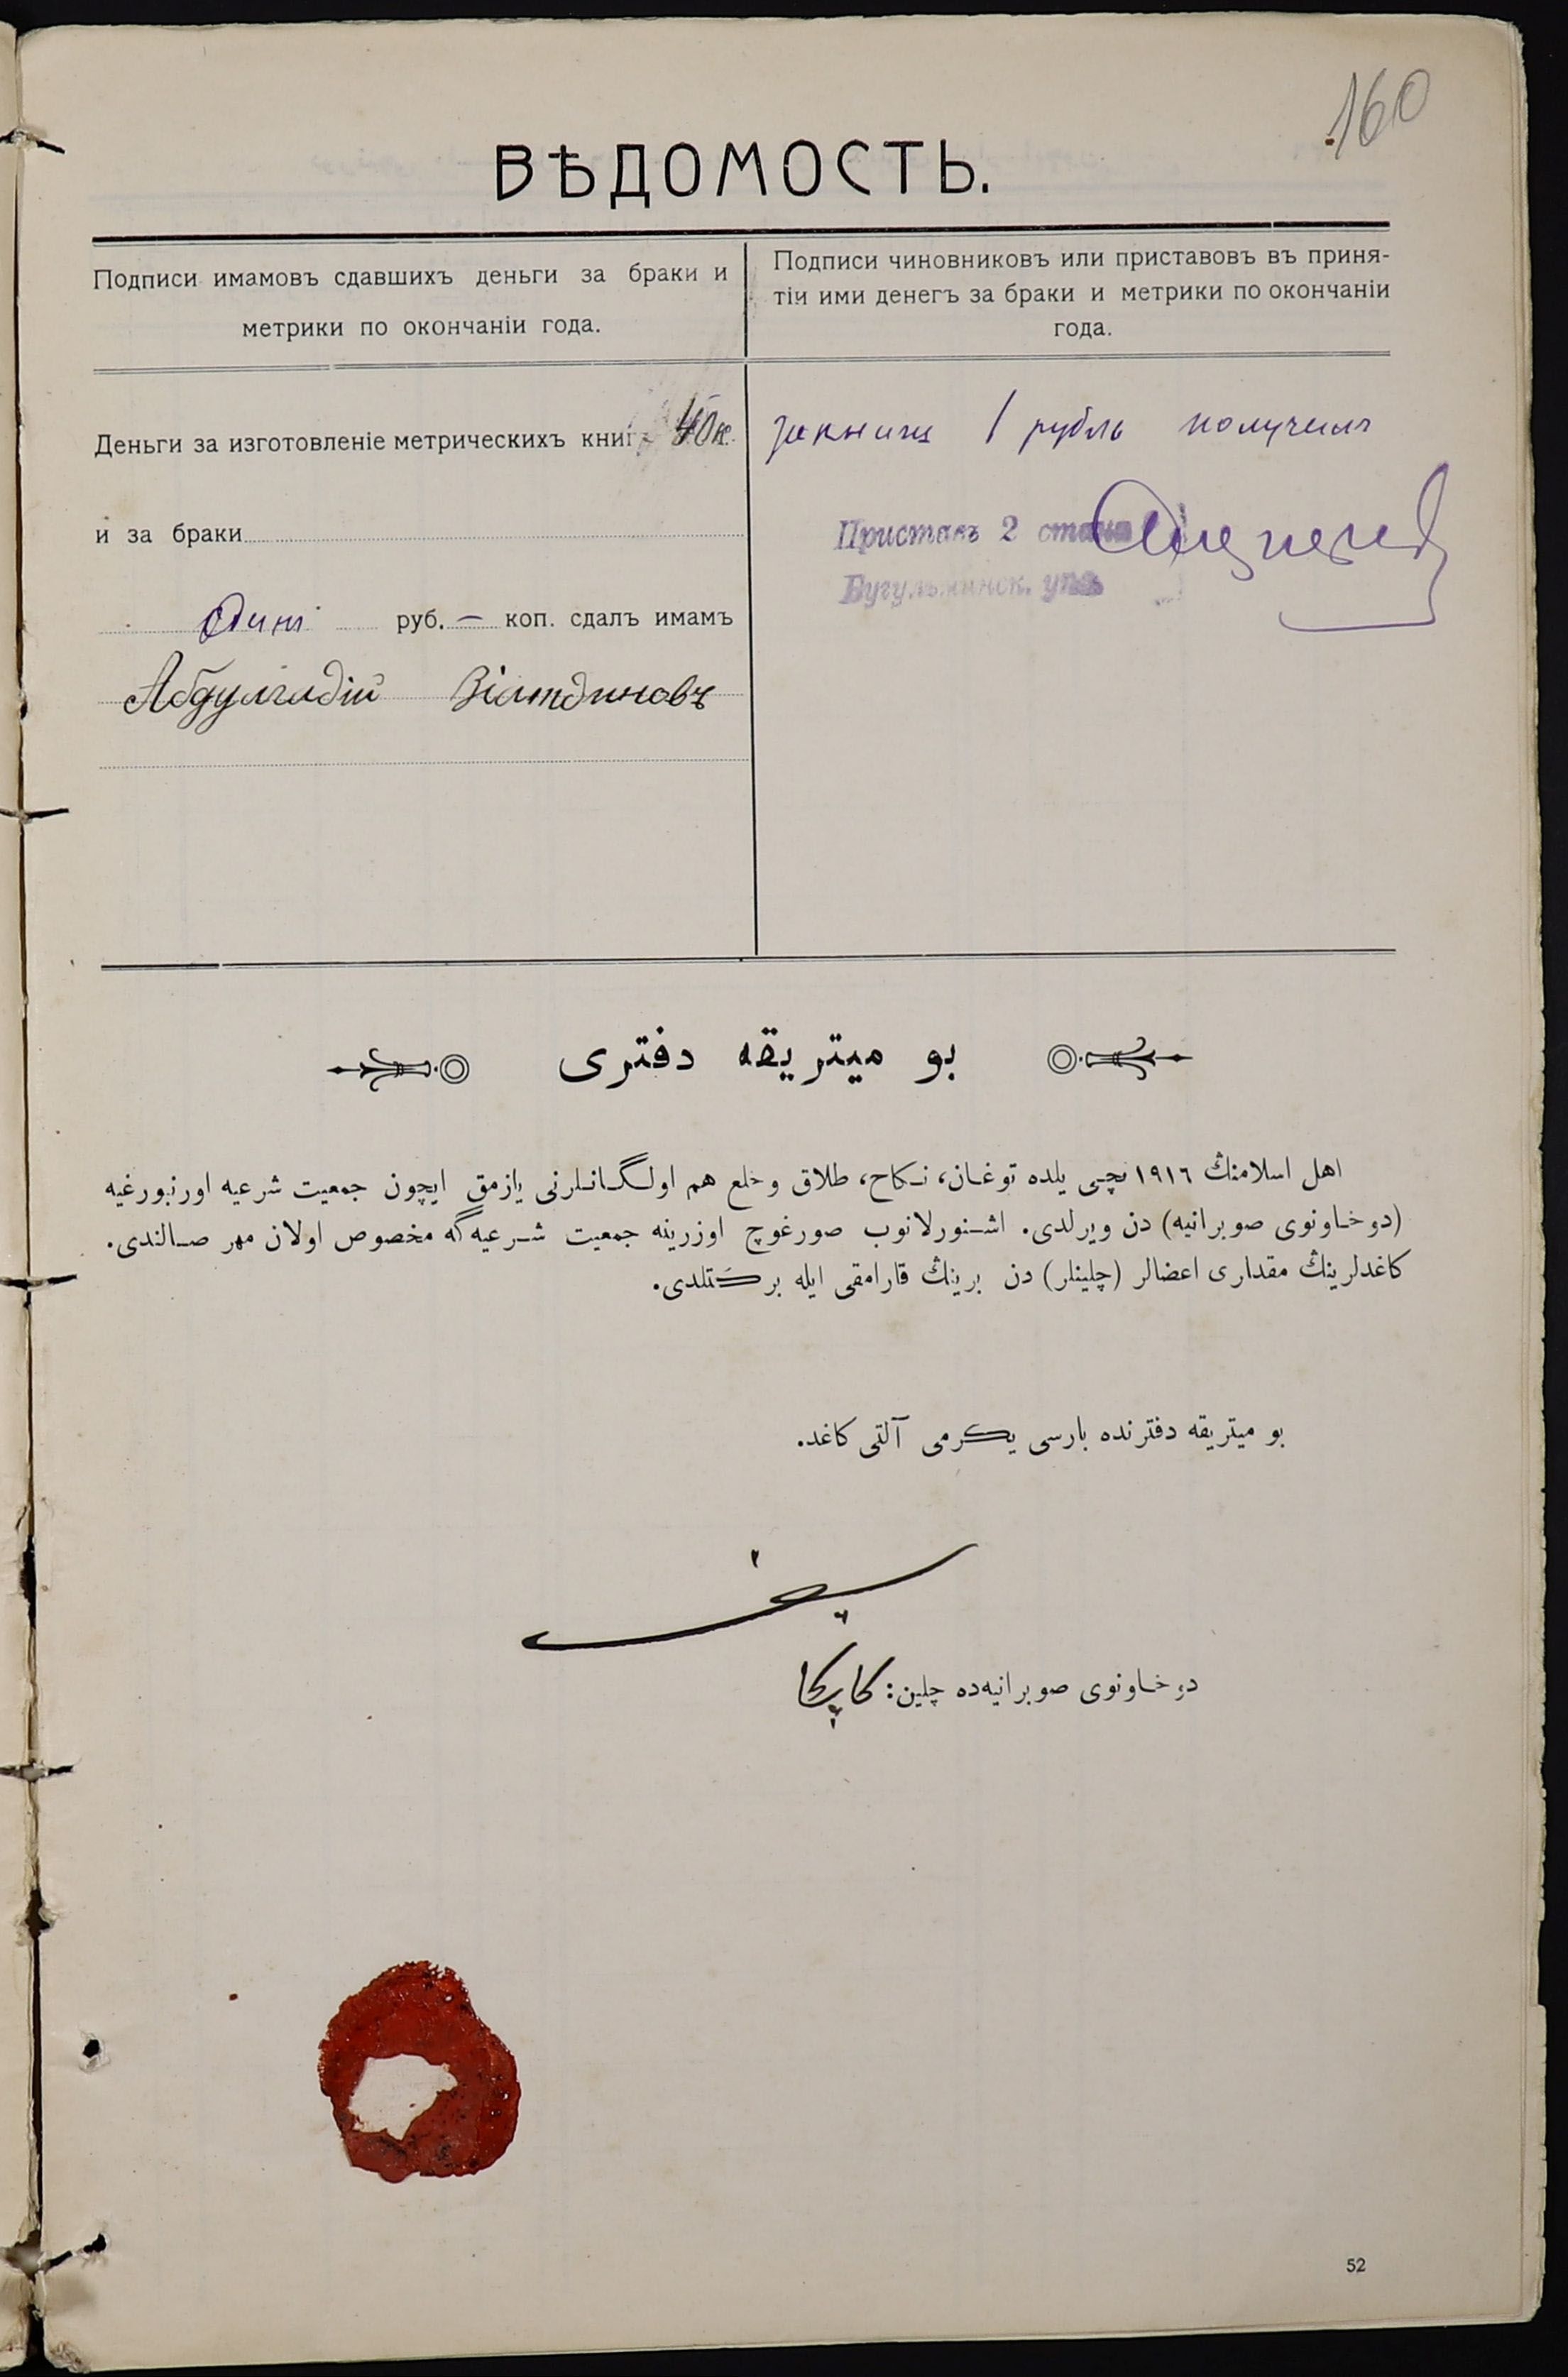 160
ВѢДОМОСТЬ.
Подписи имамовъ сдавшихъ деньги за браки и
метрики по окончаніи года.
Подписи чиновниковъ или приставовъ въ приня-
тіи ими денегъ за браки и метрики по окончаніи
года.
Деньги за изготовленіе метрическихъ книгъ 40к.
и за браки
Одинъ руб. — коп. сдалъ имамъ
Абдулгадій Зіятдиновъ
за книги 1 рубль получилъ
Приставъ 2 стана
Бугульминск. уѣз
بو ميتريقه دفترى
اهل اسلامنڭ ١٩١٦ نچى يلده توغـان، نـكاح، طلاق وخلع هم اولـگـانـلرنى يازمق ايچون جمعيت شرعيه اورنبورغيه
(دوخـاونوى صوبرانيه) دن ويرلدى. اشـنورلانوب صورغوچ اوزرينه جمعيت شـرعيه گه مخصوص اولان مهر صـالندى.
كاغدلرينڭ مقدارى اعضالر (چلينلر) دن برينڭ قارامقى ايله بركتلدى.
بو ميتريقه دفترنده بارسى يكرمى آلتى كاغد.
دوخـاونوى صوبرانيه‌ده چلين:
52